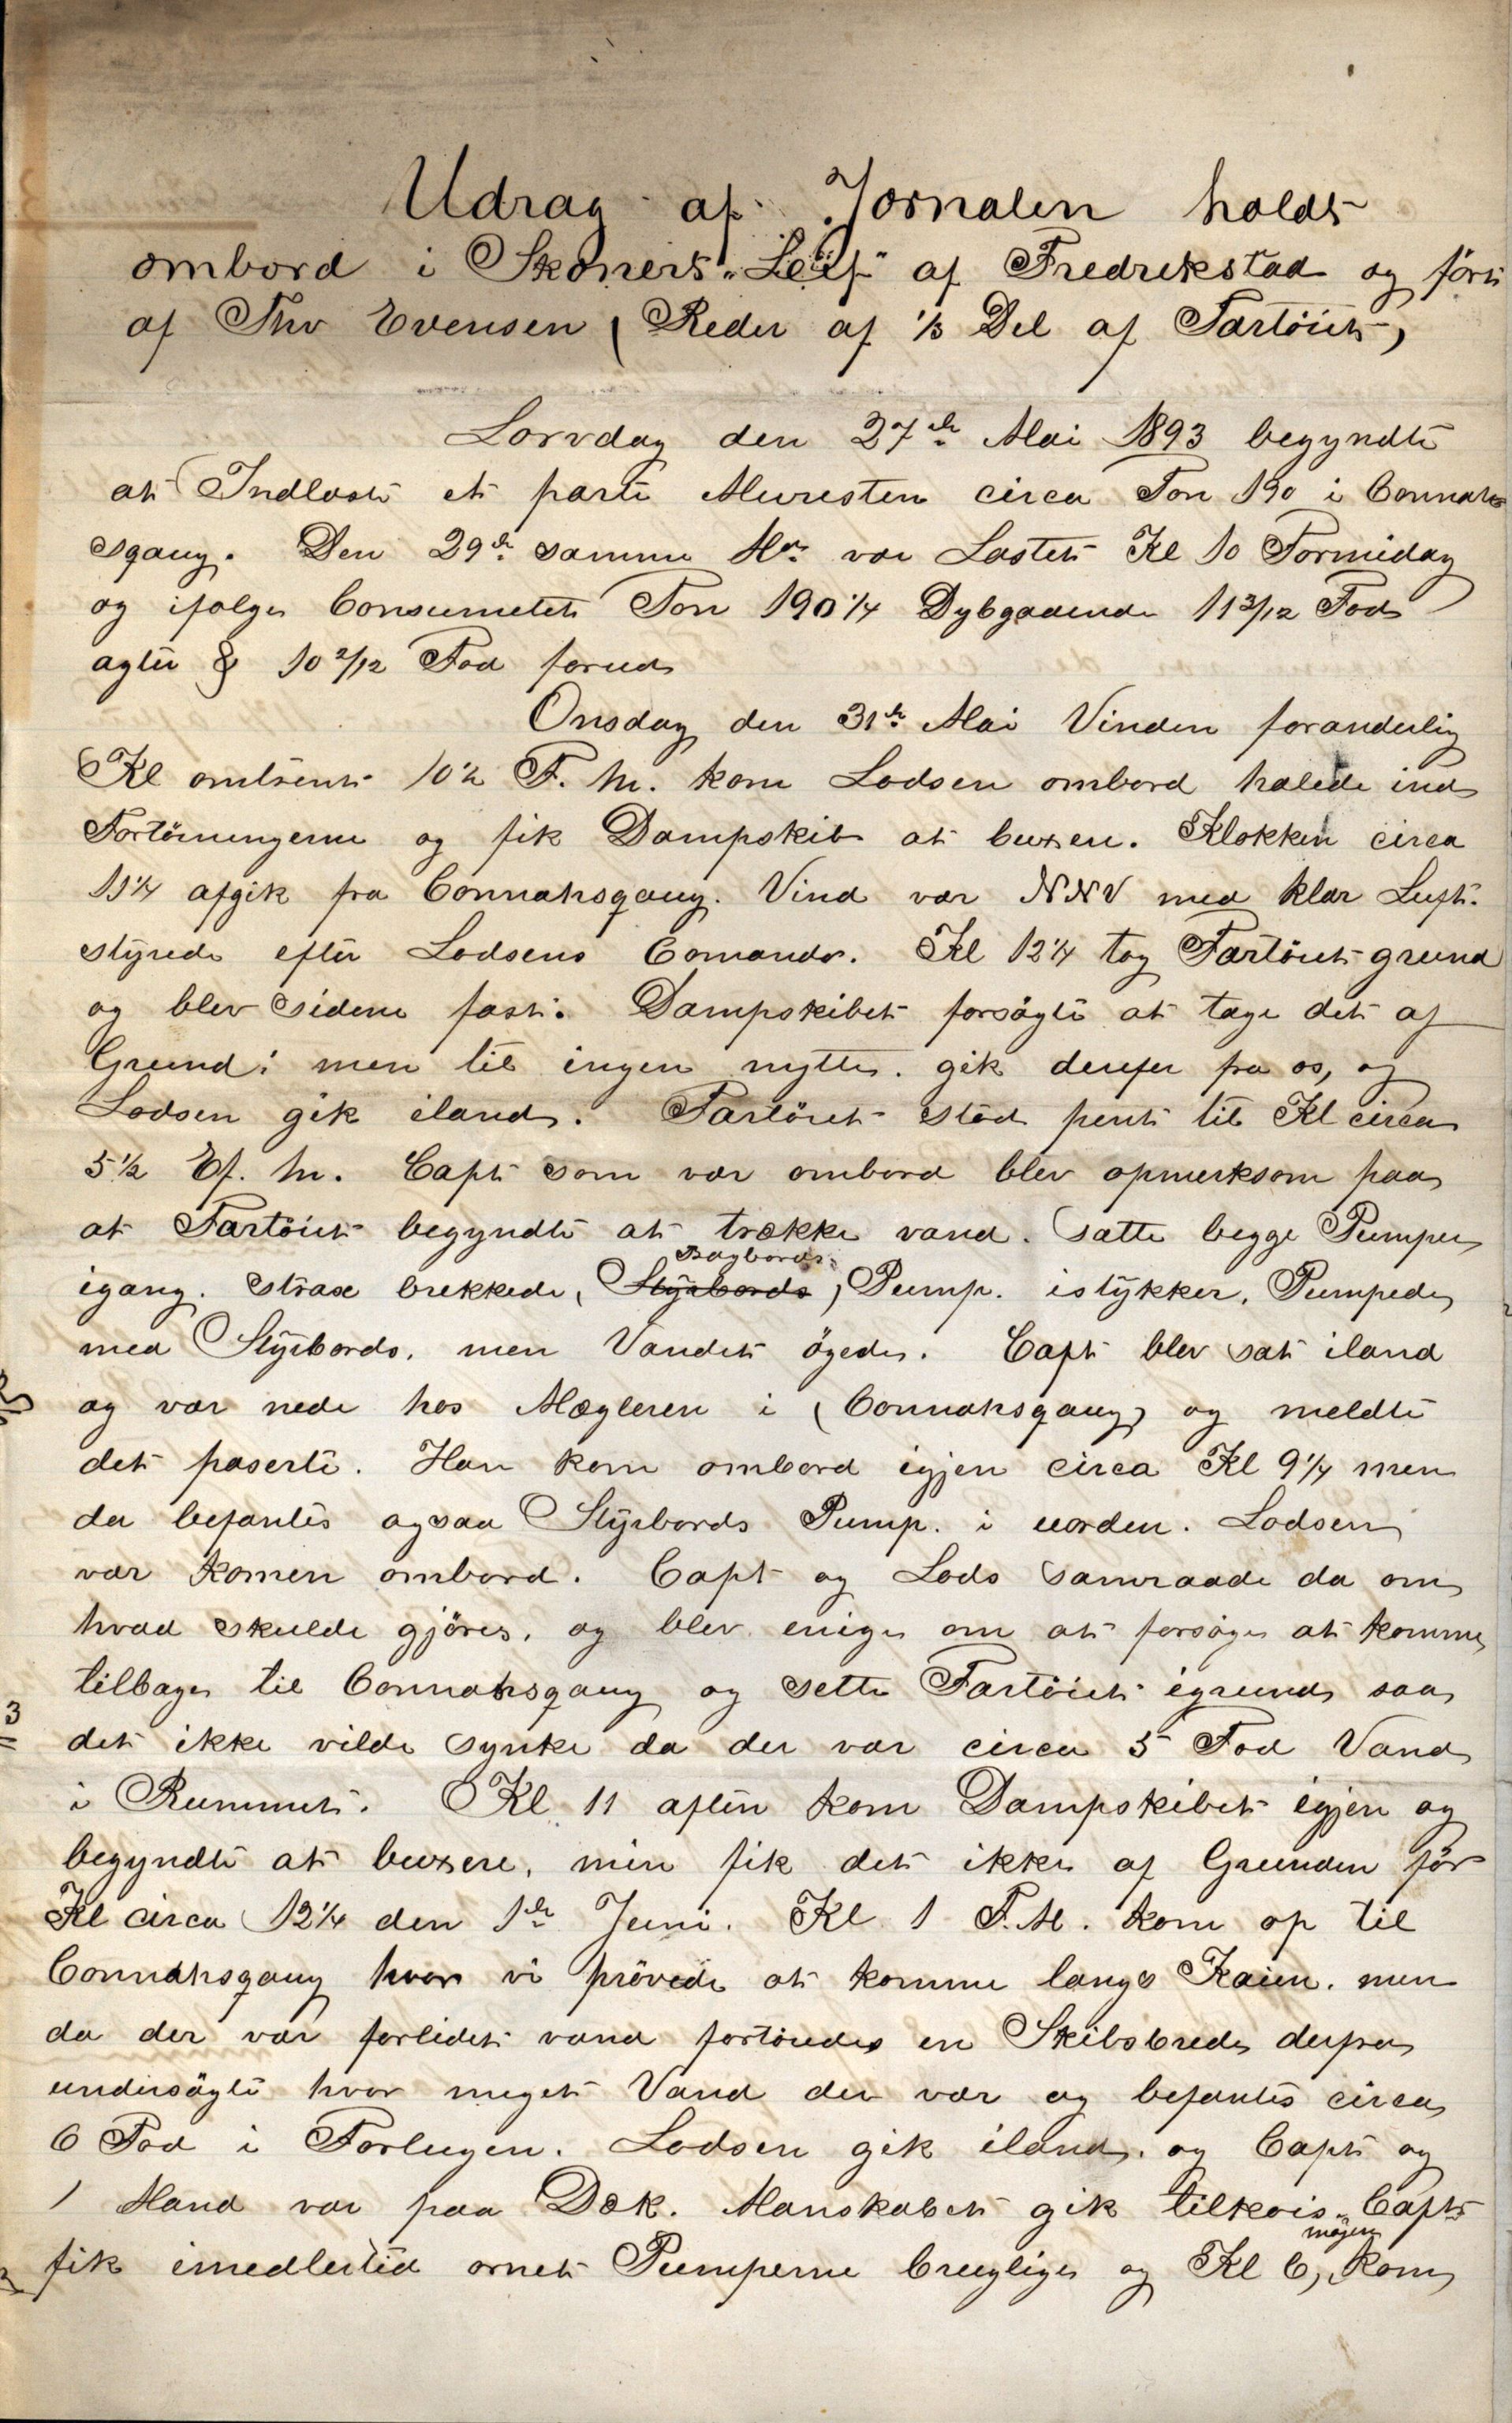 Udrag af Jornalen holdt
ombord i Skonert "Leif" af Fredrekstad og ført
af Thv Evensen (Reder af 1/3 Del af Fartöiet)
Lorvdag den 27de Mai 1893 begyndte
at Indlaste et parti Muresten circa Ton 190 i Connahs
sqauy. Den 29de samme Mn var Lastet Kl 10 Formidag
og ifølge Consumetet Ton 190 1/4 Dybgaaende 11 3/12 Fod
agter & 10 2/12 Fod forud
Onsdag den 31te Mai Vinden foranderlig
Kl omtrent 10 1/2 F. m. kom Lodsen ombord halede ind
Fortöiningerne og fik Dampskib at buxere. Klokken circa
11 1/4 afgik fra Connahsqauy. Vind var NNV med klar Luft.
styrede efter Lodsens Comando. Kl 12 1/4 tog Fartöiet grund
og blev sidene fast. Dampskibet forsögte at tage det af
Grund; men til ingen nytte. gik derefer fra os, og
Lodsen gik iland. Fartöiet stod pent til Kl circa
5 1/2 Ef. m. Capt som var ombord blev opmerksom paa
at Fartöiet begyndte at trække vand. satte begge Pumper
Bagbords
igang. strax brekkede, Styrbords, Pump. istykker, Pumpede
med Styrbords, men Vandet ögede. Capt blev sat iland
og var nede hos Mægleren i (Connahsqauy) og meldte
det paserte. Han kom ombord igjen circa Kl 9 1/4 men
da befantes ogsaa Styrbords Pump. i uorden. Lodsen
var komen ombord. Capt og Lods samraade da om
hvad skulde gjöres, og blev enige om at forsöge at komme
tilbage til Connahsqauy og sette Fartöiet igrund saa
3
det ikke vilde synke da der var circa 5 Fod Vand
i Rummet. Kl 11 aften kom Dampskibet igjen og
begyndte at buxere, men fik det ikke af Grunden för
Kl circa 12 1/4 den 1te Juni. Kl 1 F.M. kom op til
Connahsqauy hvor vi prövede at komme langs Kaien, men
da der var forlidet vand fortöiedes en Skibsbrede derfra
undersögte hvor meget Vand der var og befantes circa
6 Fod i Forlugen. Lodsen gik iland, og Capt og
1 Mand var paa Dæk. Manskabet gik tilkois. Capt
morgen
fik imedlertid ornet Pumperne brugelige og Kl 6, kom